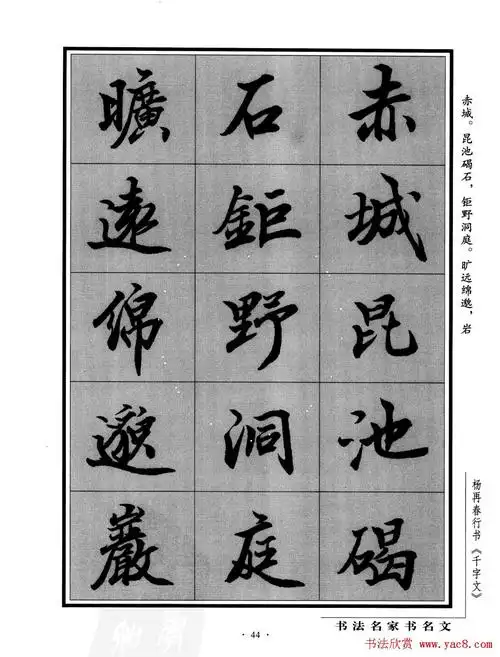 赤城昆池碣
石鉅野洞庭
曠遠綿邈巖
赤城。昆池碣石，钜野洞庭。旷远绵邈，岩
杨再春行书《千字文》
书法名家书名文
· 44 ·
书法欣赏 www.yac8.com